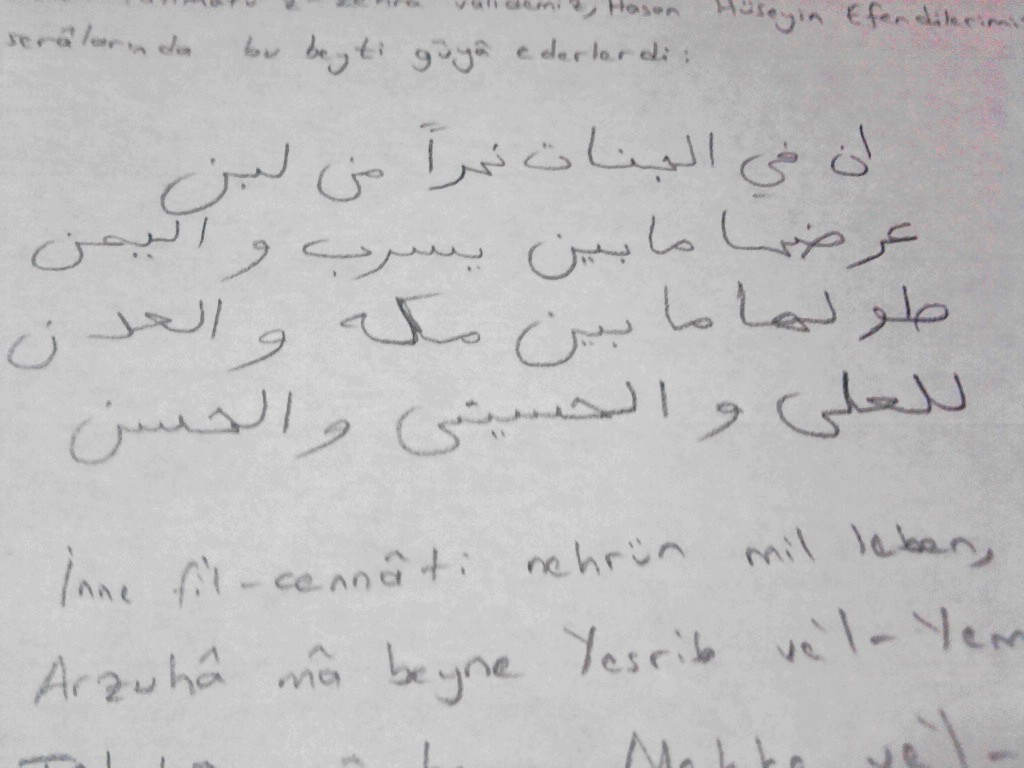 validemiz, Hasan Hüseyin Efendilerimiz
serâlarında bu beyti gûyâ ederlerdi:
ان في الجنات نهراً من لبن
عرضها ما بين يسرب و اليمن
طولها ما بين مكه و العدن
للعلى و الحسينى و الحسن
İnne fi'l-cennâti nehrün mil leben,
Arzuhâ mâ beyne Yesrib ve'l-Yem
Mekke ve'l-